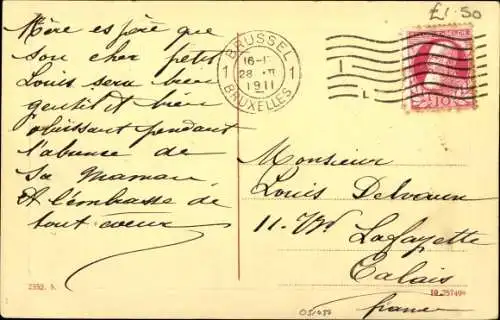 Mère espère que
son cher petit
Louis sera bien
gentil et bien
obéissant pendant
l'absence de
sa maman
et l'embrasse de
tout coeur
£1.50
BRUSSEL
1 1
16-
28
1911
BRUXELLES
L
10
Monsieur
Louis Delvaux
11.
Lafayette
Calais
france
2352.
19 257494